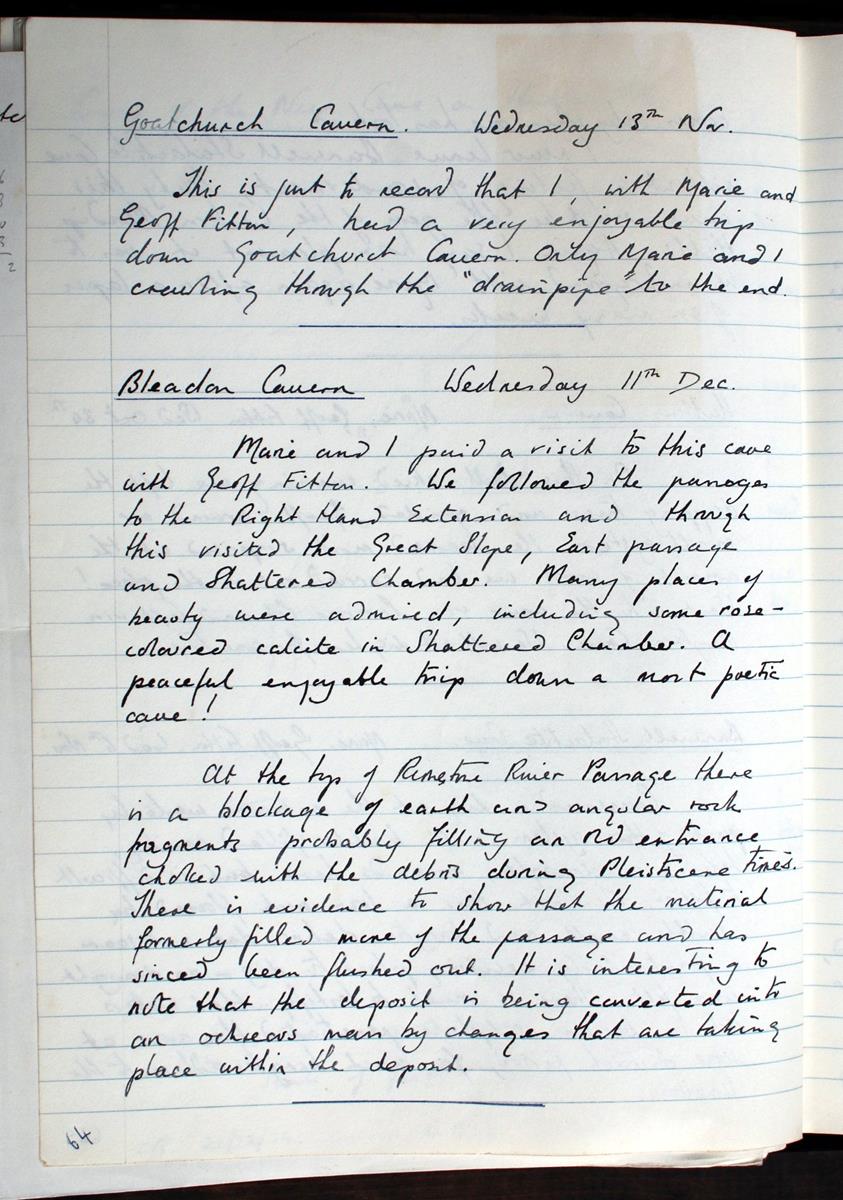 Goatchurch Cavern. Wednesday 13th Nov.
This is just to record that I, with Marie and
Geoff Fitton, had a very enjoyable trip
down Goatchurch Cavern. Only Marie and I
crawling through the "drainpipe" to the end.
Bleadon Cavern Wednesday 11th Dec.
Marie and I paid a visit to this cave
with Geoff Fitton. We followed the passages
to the Right Hand Extension and through
this visited the Great Slope, East passage
and Shattered Chamber. Many places of
beauty were admired, including some rose-
coloured calcite in Shattered Chamber. A
peaceful enjoyable trip down a most poetic
cave!
At the top of Rimstone River Passage there
is a blockage of earth and angular rock
fragments probably filling an old entrance
choked with the debris during Pleistocene times.
There is evidence to show that the material
formerly filled more of the passage and has
sinced been flushed out. It is interesting to
note that the deposit is being converted into
an ochreous mass by changes that are taking
place within the deposit.
64